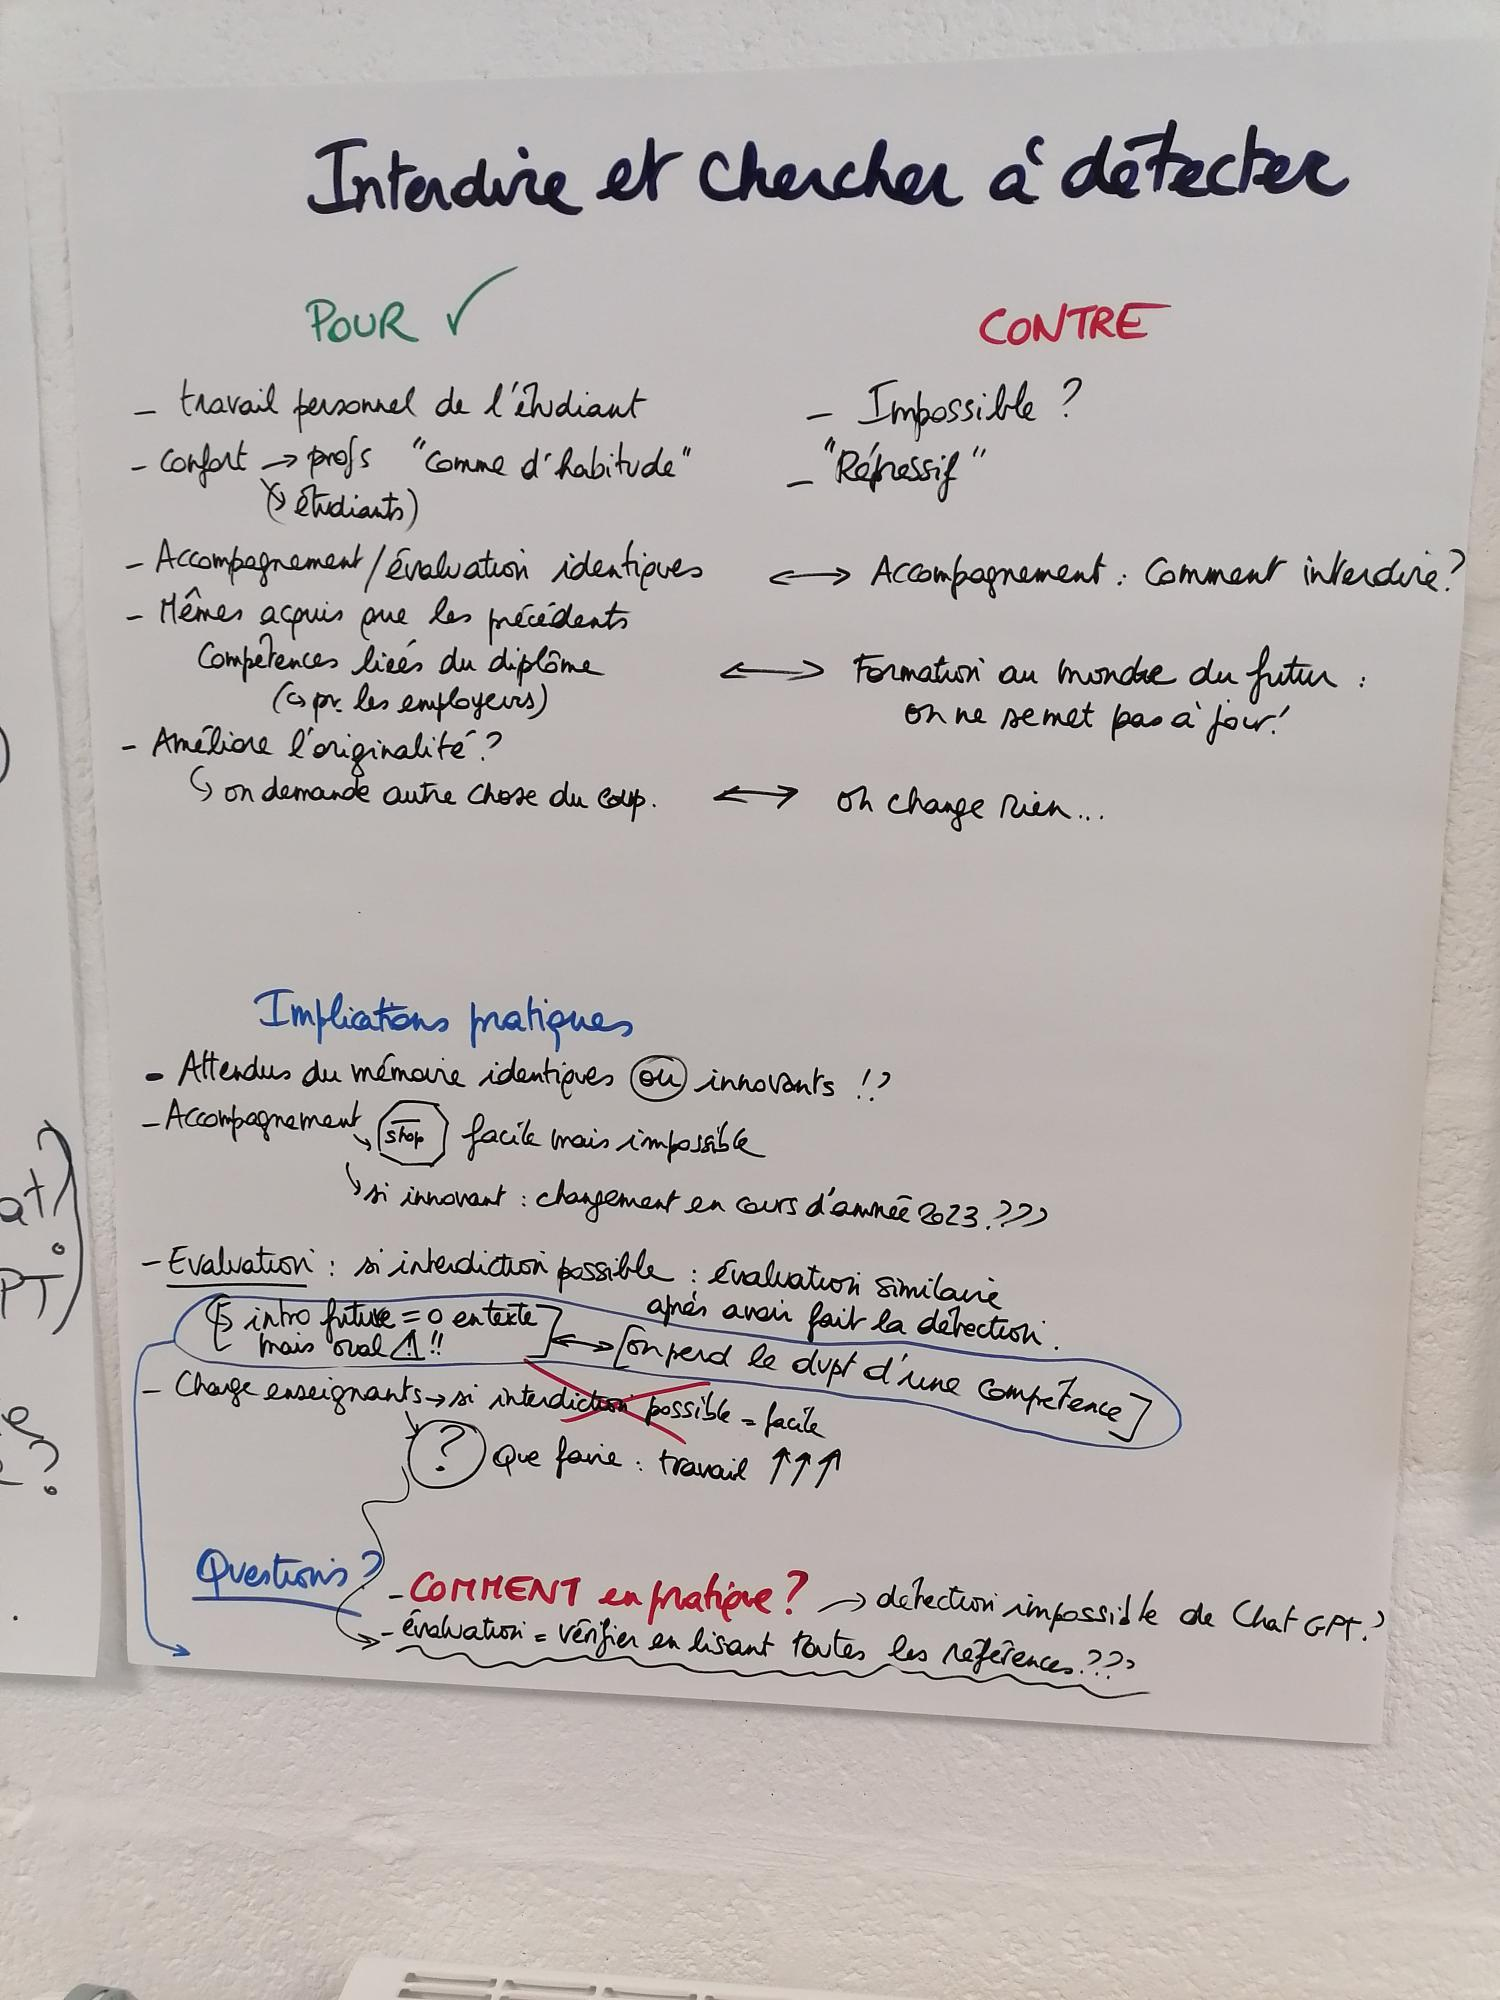 Interdire et chercher à détecter
POUR ✓
- travail personnel de l'étudiant
- confort → profs "comme d'habitude"
(↳ étudiants)
- Accompagnement/évaluation identiques
- Mêmes acquis que les précédents
Compétences liées du diplôme
(↳ pr. les employeurs)
- Améliore l'originalité ?
↳ on demande autre chose du coup.
CONTRE
- Impossible ?
- "Répressif"
↔ Accompagnement : Comment interdire ?
↔ Formation au monde du futur :
on ne se met pas à jour !
↔ on change rien...
Implications pratiques
- Attendus du mémoire identiques ou innovants !?
- Accompagnement ↘ stop facile mais impossible
↘ si innovant : changement en cours d'année 2023 ???
- Evaluation : si interdiction possible : évaluation similaire
après avoir fait la détection.
[↳ intro future = 0 en texte
mais oral ⚠ !!] ↔ [on perd le dvpt d'une compétence]
- Charge enseignants → si interdiction possible = facile
? Que faire : travail ↑↑↑
Questions ?
- COMMENT en pratique ? → détection impossible de Chat GPT ?
- évaluation = vérifier en lisant toutes les références ???
at)
PT)
?